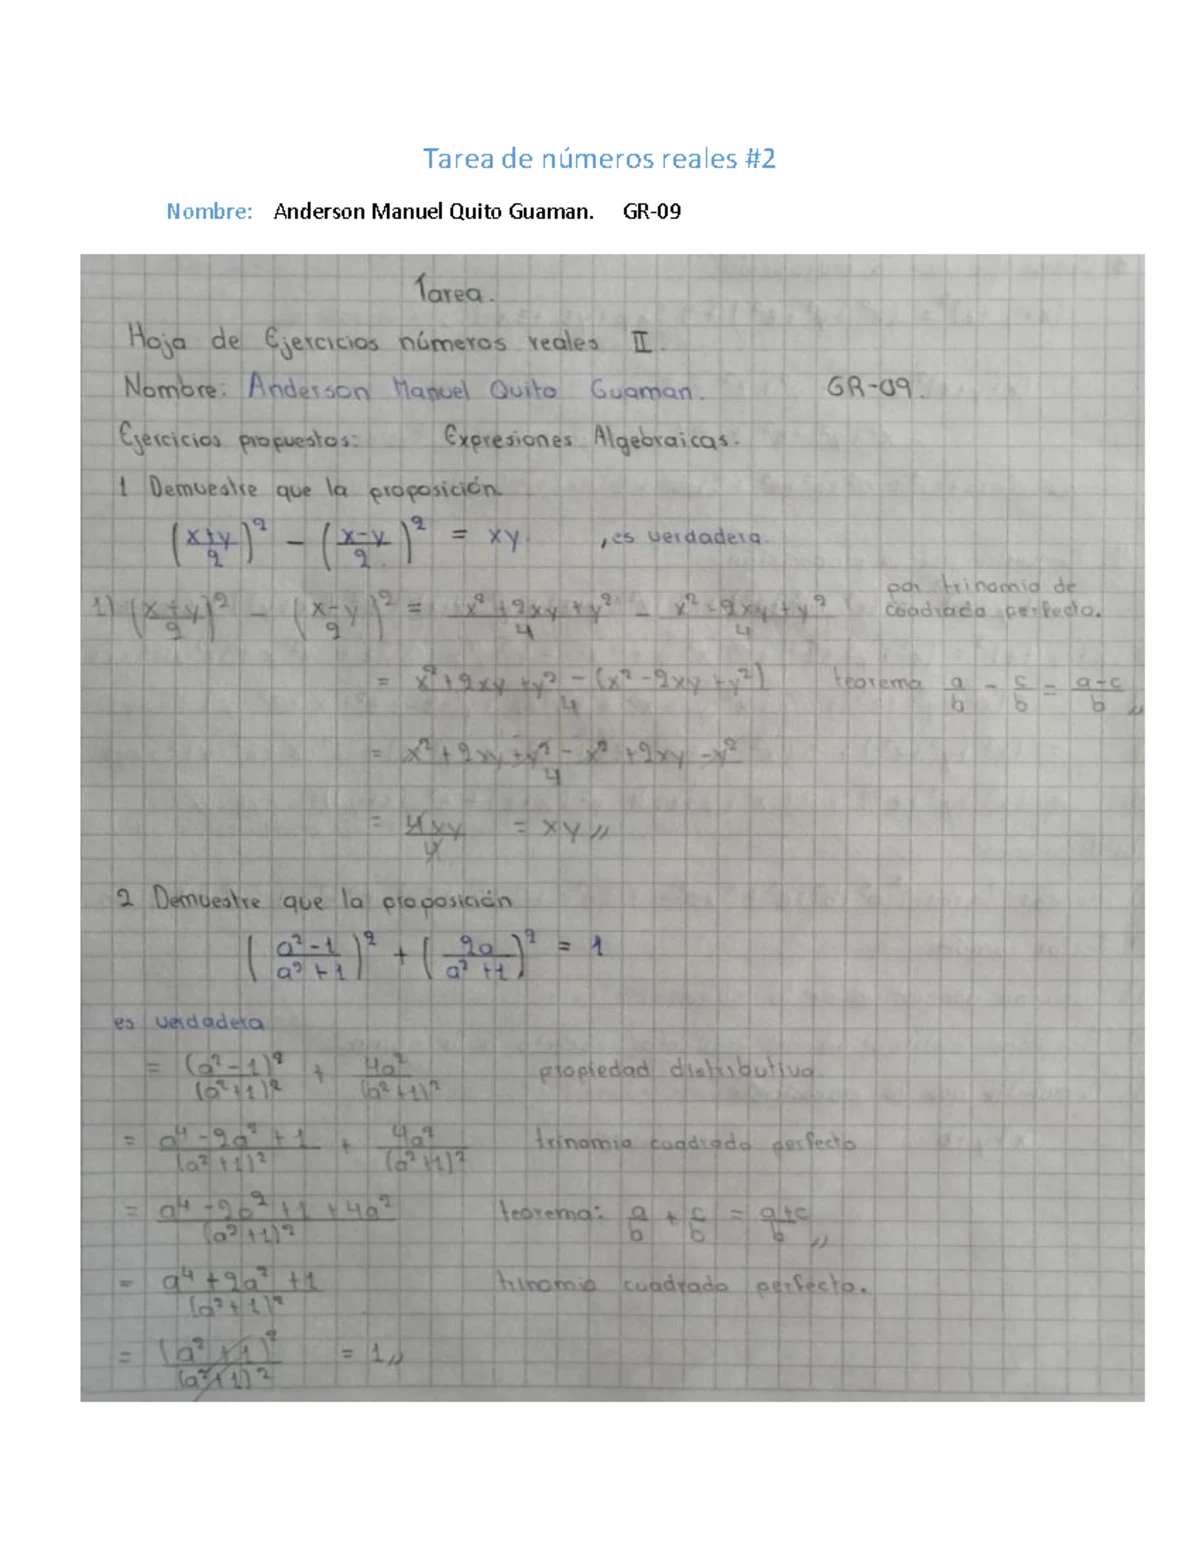 Tarea de números reales #2
Nombre: Anderson Manuel Quito Guaman. GR-09
Tarea.
Hoja de Ejercicios números reales II.
Nombre: Anderson Manuel Quito Guaman. GR-09.
Ejercicios propuestos: Expresiones Algebraicas.
1 Demuestre que la proposición
((x+y)/2)² - ((x-y)/2)² = xy , es verdadera.
1) ((x+y)/2)² - ((x-y)/2)² = (x²+2xy+y²)/4 - (x²-2xy+y²)/4 por trinomio de cuadrado perfecto.
= (x²+2xy+y²-(x²-2xy+y²))/4 teorema a/b - c/b = (a-c)/b //
= (x²+2xy+y²-x²+2xy-y²)/4
= 4xy/4 = xy //
2 Demuestre que la proposición
((a²-1)/(a²+1))² + (2a/(a²+1))² = 1
es verdadera
= (a²-1)²/(a²+1)² + 4a²/(a²+1)² propiedad distributiva.
= (a⁴-2a²+1)/(a²+1)² + 4a²/(a²+1)² trinomio cuadrado perfecto
= (a⁴-2a²+1+4a²)/(a²+1)² teorema: a/b + c/b = (a+c)/b //
= (a⁴+2a²+1)/(a²+1)² trinomio cuadrado perfecto.
= (a²+1)²/(a²+1)² = 1 //